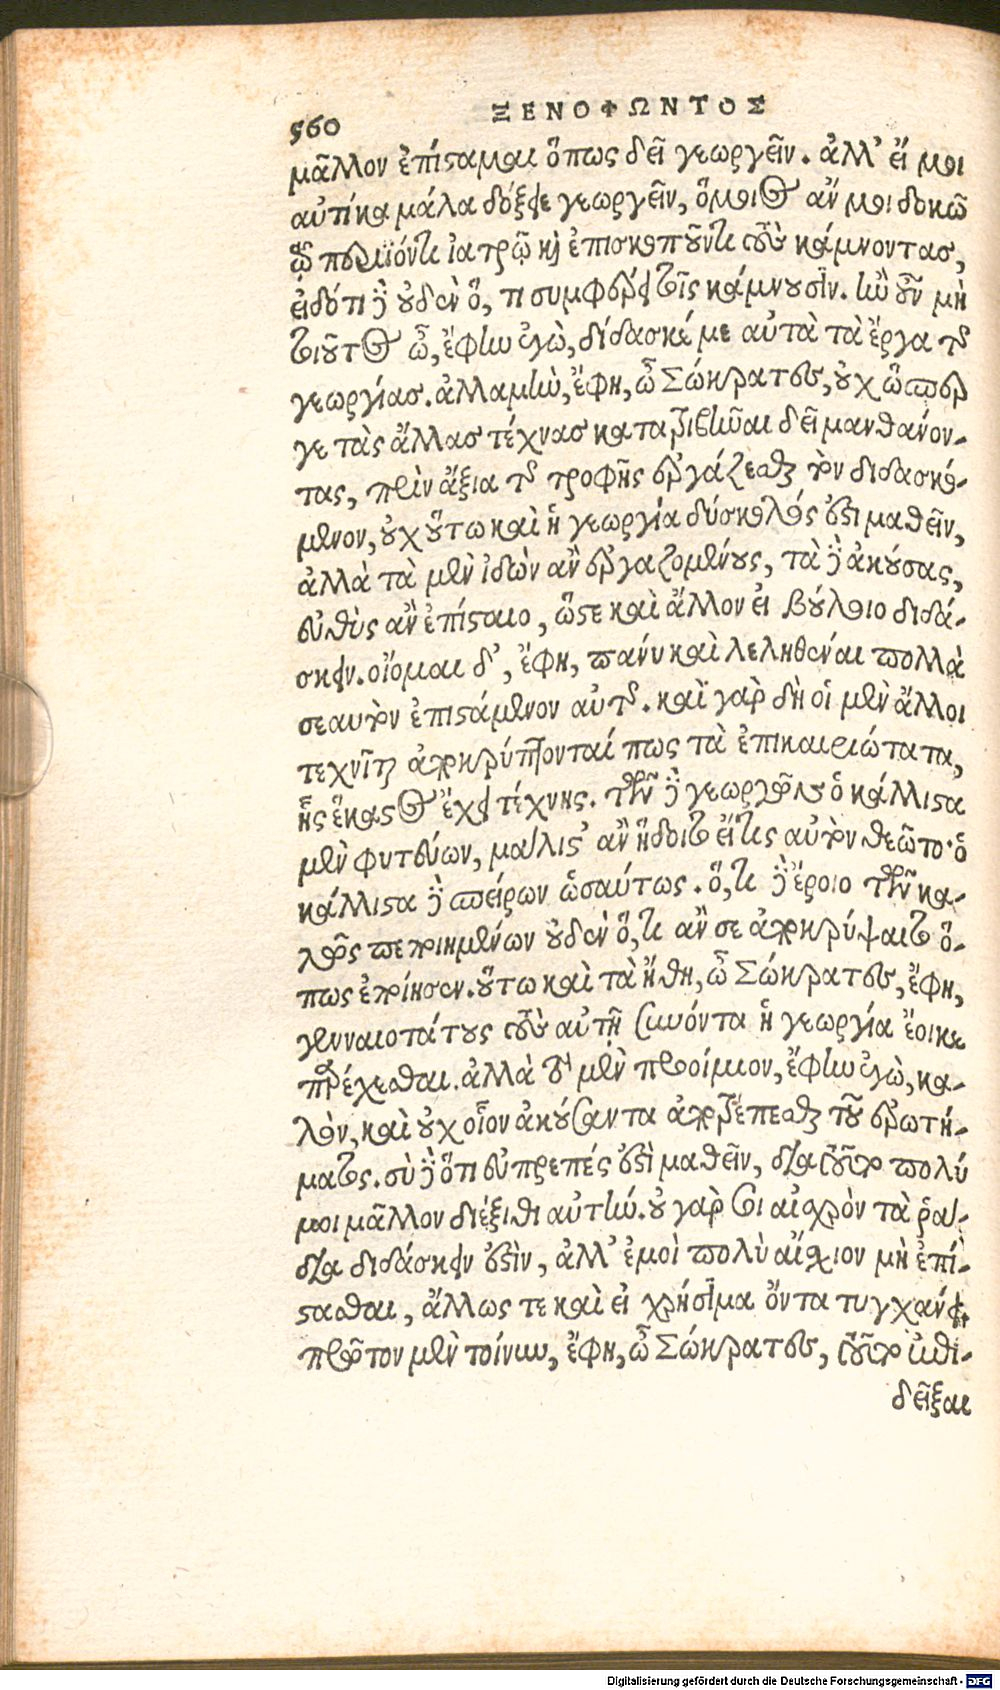 560 ΞΕΝΟΦΩΝΤΟΣ
μᾶλλον ἐπίσταμαι ὅπως δεῖ γεωργεῖν. ἀλλ' εἴ μοι
αὐτίκα μάλα δόξειε γεωργεῖν, ὅμοιος ἄν μοι δοκῶ
τῷ περιϊόντι ἰατρῷ καὶ ἐπισκοποῦντι τοὺς κάμνοντας,
εἰδότι δὲ οὐδὲν ὅ, τι συμφέρει τοῖς κάμνουσιν. ἵν' οὖν μὴ
τοιοῦτος ὦ, ἔφην ἐγὼ, δίδασκέ με αὐτὰ τὰ ἔργα τῆς
γεωργίας. ἀλλὰ μὴν, ἔφη, ὦ Σώκρατες, οὐχ ὥσπερ
γε τὰς ἄλλας τέχνας κατατριβῆναι δεῖ μανθάνον-
τας, πρὶν ἄξια τῆς τροφῆς ἐργάζεσθαι τὸν διδασκό-
μενον, οὐχ οὕτω καὶ ἡ γεωργία δύσκολός ἐστι μαθεῖν,
ἀλλὰ τὰ μὲν ἰδὼν ἂν ἐργαζομένους, τὰ δὲ ἀκούσας,
εὐθὺς ἂν ἐπίσταιο, ὥστε καὶ ἄλλον εἰ βούλοιο διδά-
σκειν. οἴομαι δ', ἔφη, πάνυ καὶ λεληθέναι πολλὰ
σεαυτὸν ἐπιστάμενον αὐτῆς. καὶ γὰρ δὴ οἱ μὲν ἄλλοι
τεχνῖται ἀποκρύπτονταί πως τὰ ἐπικαιριώτατα,
ἧς ἕκαστος ἔχει τέχνης. τῶν δὲ γεωργῶν ὁ κάλλιστα
μὲν φυτεύων, μάλιστ' ἂν ἥδοιτο εἴ τις αὐτὸν θεῷτο· ὁ
κάλλιστα δὲ σπείρων ὡσαύτως. ὅ, τι δὲ ἔροιο τῶν κα-
λῶς πεποιημένων οὐδὲν ὅ, τι ἄν σε ἀποκρύψαιτο ὅ-
πως ἐποίησεν. οὕτω καὶ τὰ ἤθη, ὦ Σώκρατες, ἔφη,
γενναιοτάτους τοὺς αὐτῇ συνόντα ἡ γεωργία ἔοικε
παρέχεσθαι. ἀλλὰ τὸ μὲν προοίμιον, ἔφην ἐγὼ, κα-
λὸν, καὶ οὐχ οἷον ἀκούσαντα ἀποτρέπεσθαι τοῦ ἐρωτή-
ματος. σὺ δὲ ὅτι εὐπετές ἐστὶ μαθεῖν, διὰ τοῦτο πολύ
μοι μᾶλλον διέξιθι αὐτήν. οὐ γὰρ σοι αἰσχρὸν τὰ ῥᾴ-
δια διδάσκειν ἐστὶν, ἀλλ' ἐμοὶ πολὺ αἴσχιον μὴ ἐπί-
στασθαι, ἄλλως τε καὶ εἰ χρήσιμα ὄντα τυγχάνει.
πρῶτον μὲν τοίνυν, ἔφη, ὦ Σώκρατες, τοῦτο ἐπι-
δεῖξαι
Digitalisierung gefördert durch die Deutsche Forschungsgemeinschaft - DFG